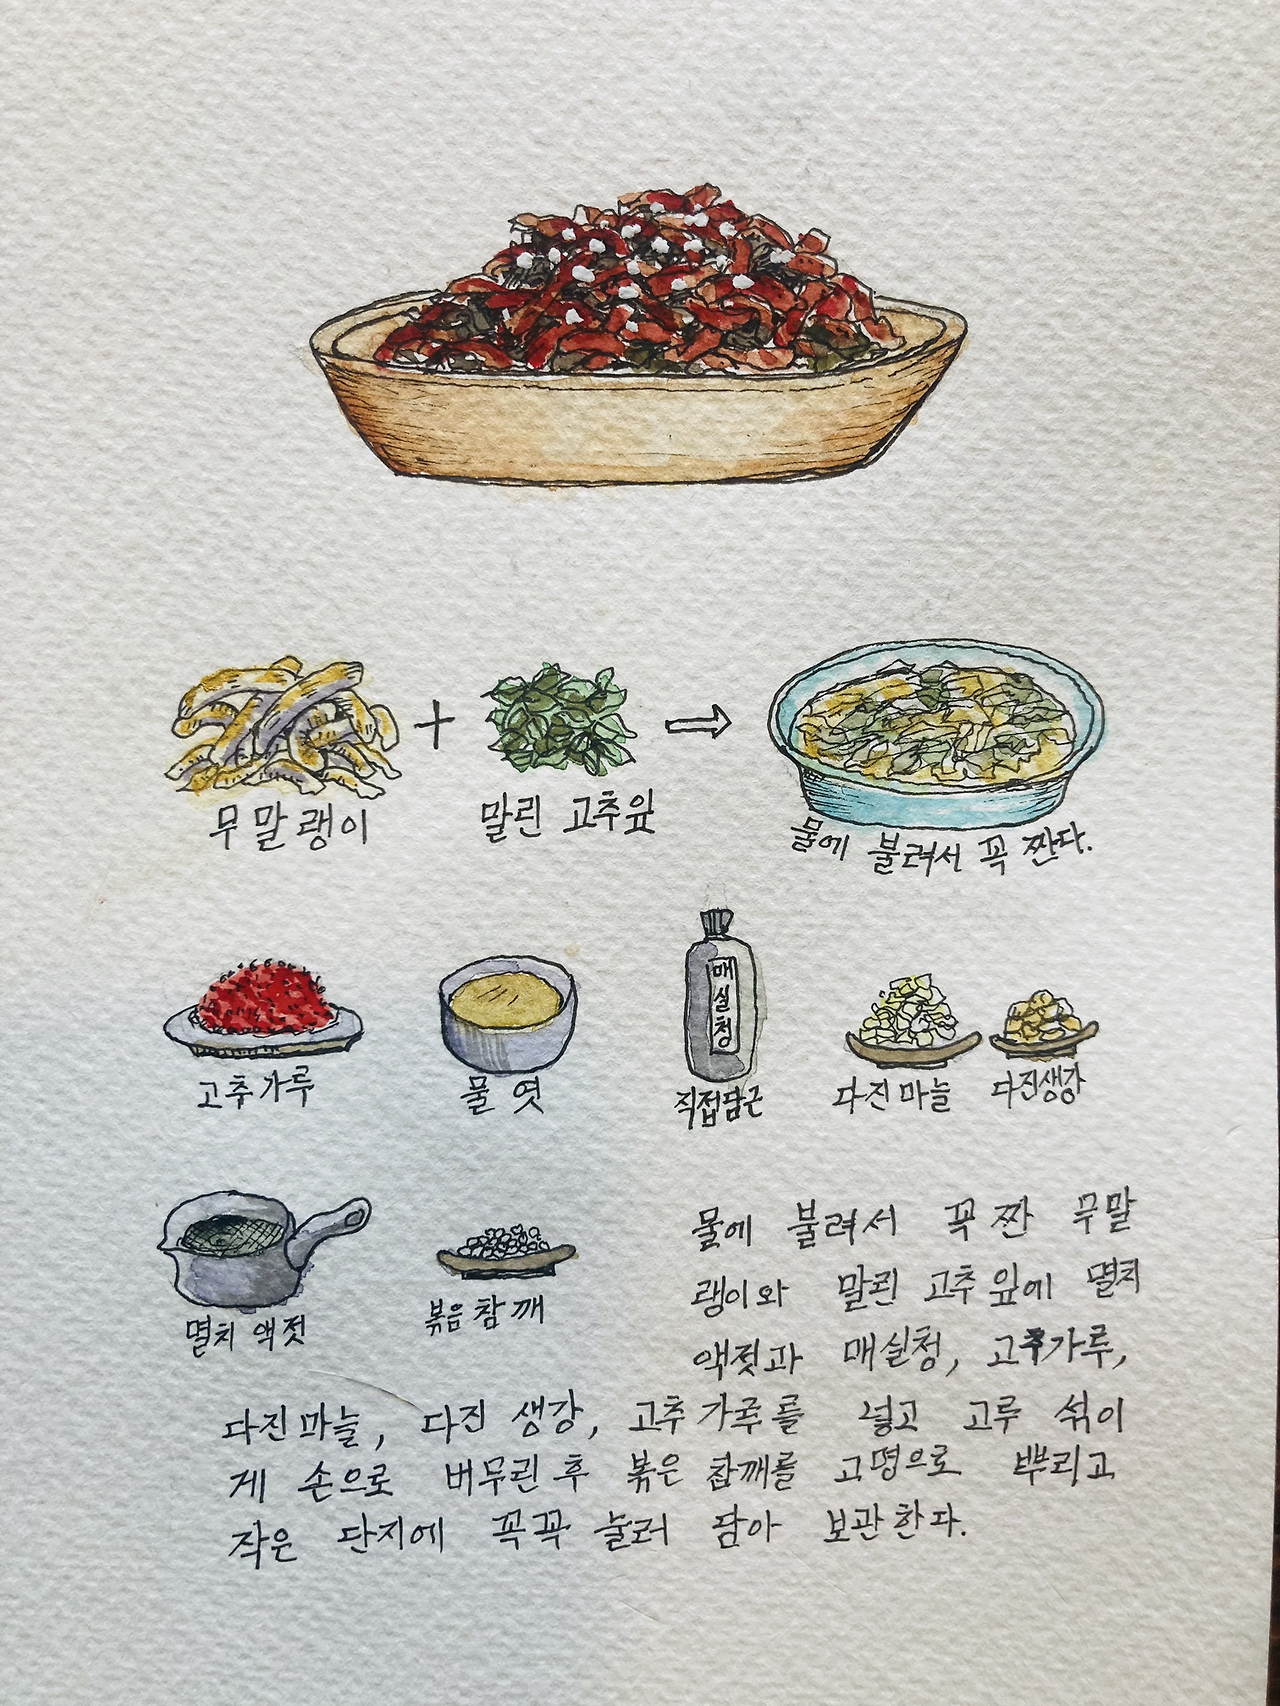 무말랭이
말린 고추잎
물에 불려서 꼭 짠다.
고추가루
물엿
매실청
직접담근
다진마늘
다진생강
멸치 액젓
볶음참깨
물에 불려서 꼭 짠 무말
랭이와 말린 고추잎에 멸치
액젓과 매실청, 고추가루,
다진마늘, 다진 생강, 고추가루를 넣고 고루 섞이
게 손으로 버무린 후 볶은 참깨를 고명으로 뿌리고
작은 단지에 꼭꼭 눌러 담아 보관한다.